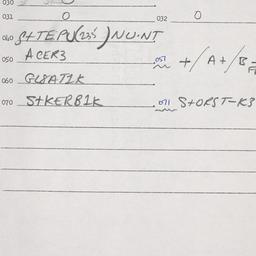 030
031 O 032 O
040 S+TEPU(235)NU.NT
050 ACER3 051 +/A+/B-
060 GL8AT1K
070 S+KERB1K 071 S+ORST-K3